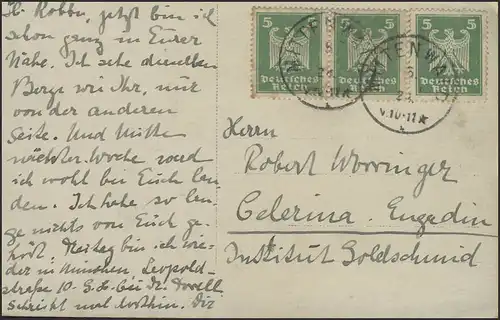 Lb. Robbi, jetzt bin ich
schon ganz in Eurer
Nähe. Ich sehe dieselben
Berge wie Ihr, nur
von der anderen
Seite. Und Mitte
nächster Woche werd
ich wohl bei Euch lan-
den. Ich habe so lan-
ge nichts von Euch ge-
hört. Freitag bin ich wie-
der in München, Leopold-
straße 10 bei Dr.
Schreibt mal dorthin. Die
5 5 5
Deutsches Reich
Deutsches Reich
Deutsches Reich
MITTENWALD
V.10-11
Herrn
Robert Worringer
Celerina. Engadin
Institut Goldschmid